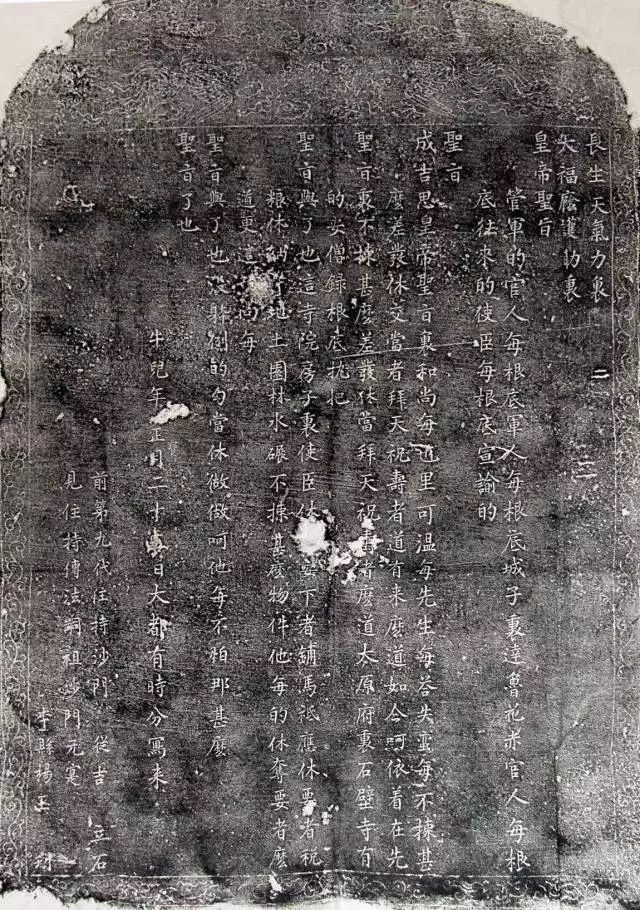 長生天氣力裏
大福廕護助裏
皇帝聖旨
管軍的官人每根底軍人每根底城子裏達魯花赤官人每根
底往來的使臣每根底宣諭的
聖旨
成吉思皇帝聖旨裏和尚每也里可溫每先生每荅失蛮每不揀甚
麼差發休交當者拜天祝壽者道有来麼道如今呵依着在先
聖旨裏不揀甚麼差發休當拜天祝壽者麼道太原府裏石壁寺有
的安僧録根底執把
聖旨與了也這寺院房子裏使臣休安下者鋪馬祗應休要者税
粮休納者地土園林水碾不揀甚麼物件他每的休奪要者麼
道更這和尚每
聖旨與了也沒躰例的勾當休做做呵他每不怕那甚麼
聖旨了也
牛兒年正月二十日大都有時分寫来
前第九代住持沙門 從吉 立石
見住持傳法嗣祖沙門元
李 楊玉